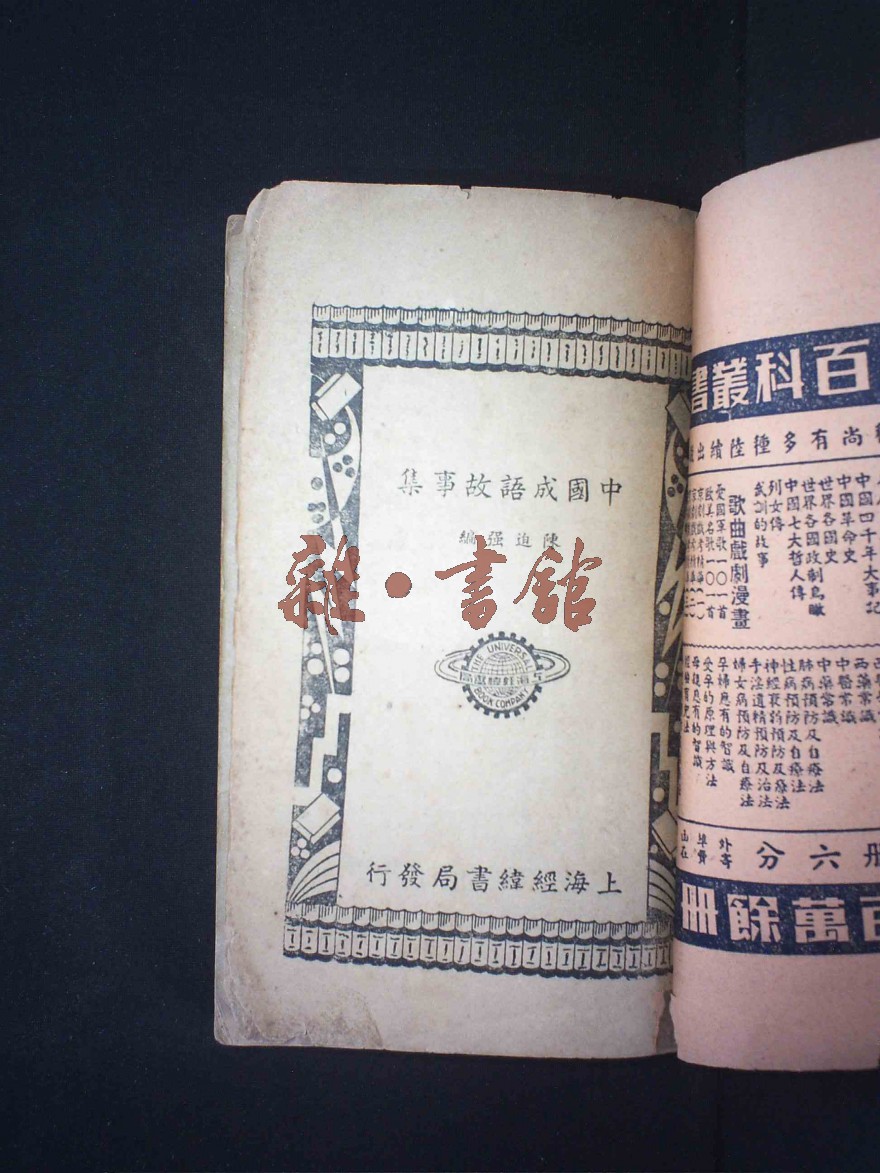 中國成語故事集
陳迫强編
雜·書館
THE UNIVERSAL
上海經緯書局
BOOK COMPANY
上海經緯書局發行
百科叢書
尚有多種陸續出
四千年大事記
中國革命史
世界各國史
世界各國政制鳥瞰
中國七大哲人傳
列女傳
武訓的故事
歌曲戲劇漫畫
愛國軍歌一〇一首
歐美名歌一〇〇首
西藥常識
中醫常識
中藥常識
肺病預防及自療法
性病預防及自療法
神經衰弱預防及療法
手淫遺精預防及治法
婦女病預防及自療法
孕婦應有的智識
受孕的原理與方法
母親應有的智識
册六分
外寄
埠費
百萬餘冊